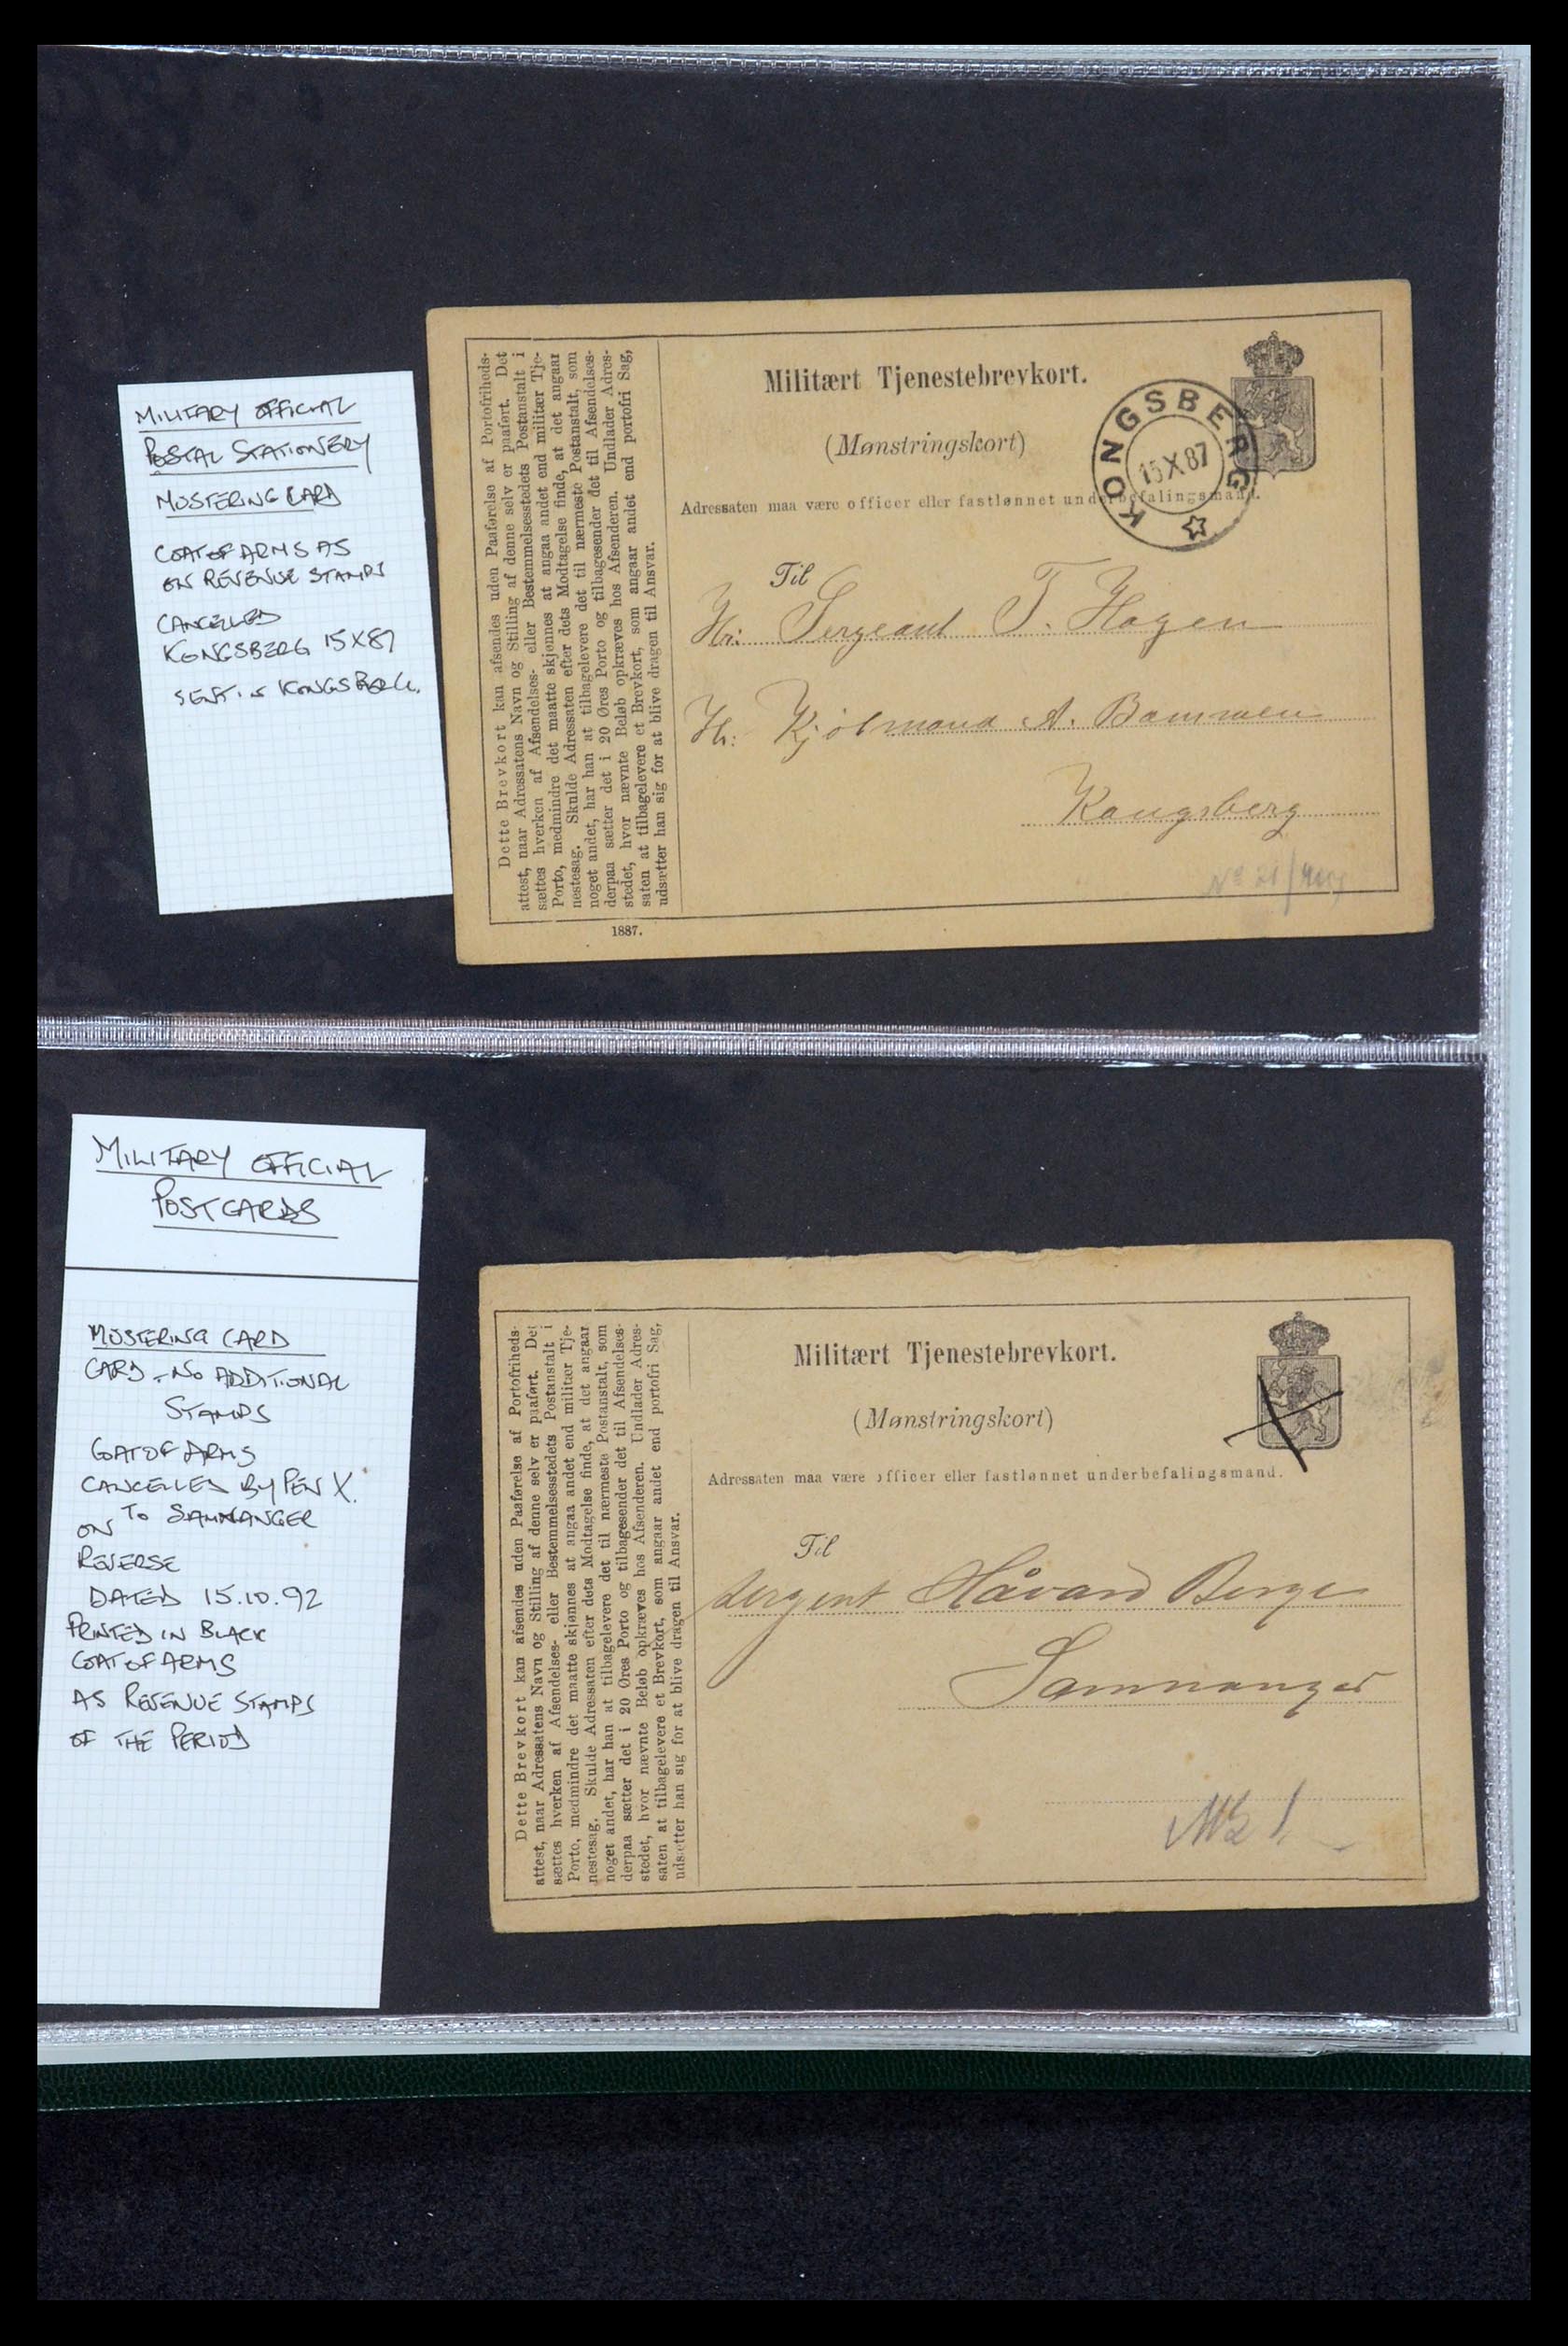 MILITARY OFFICIAL
POSTAL STATIONERY
MUSTERING CARD
COAT OF ARMS AS
ON REVENUE STAMPS
CANCELLED
KONGSBERG 15X87
SENT IN KONGSBERG.
Dette Brevkort kan afsendes uden Paaførelse af Portofriheds-
attest, naar Adressatens Navn og Stilling af denne selv er paaført. Det
sættes hverken af Afsendelses- eller Bestemmelsesstedets Postanstalt i
Porto, medmindre det maatte skjønnes at angaa andet end militær Tje-
nestesag. Skulde Adressaten efter dets Modtagelse finde, at det angaar
noget andet, har han at tilbagelevere det til nærmeste Postanstalt, som
derpaa sætter det i 20 Øres Porto og tilbagesender det til Afsendelses-
stedet, hvor nævnte Beløb opkræves hos Afsenderen. Undlader Adres-
saten at tilbagelevere et Brevkort, som angaar andet end portofri Sag,
udsætter han sig for at blive dragen til Ansvar.
1887.
Militært Tjenestebrevkort.
(Mønstringskort)
KONGSBERG
15X87
Adressaten maa være officer eller fastlønnet underbefalingsmand.
Til
Hr: Sergeant T. Hagen
Hr: A. Bammen
Kongsberg
No
MILITARY OFFICIAL
POSTCARDS
MUSTERING CARD
CARD - NO ADDITIONAL
STAMPS
COAT OF ARMS
CANCELLED BY PEN X.
TO SAMNANGER
ON
REVERSE
DATED 15.10.92
PRINTED IN BLACK
COAT OF ARMS
AS REVENUE STAMPS
OF THE PERIOD
Dette Brevkort kan afsendes uden Paaførelse af Portofriheds-
attest, naar Adressatens Navn og Stilling af denne selv er paaført. Det
sættes hverken af Afsendelses- eller Bestemmelsesstedets Postanstalt i
Porto, medmindre det maatte skjønnes at angaa andet end militær Tje-
nestesag. Skulde Adressaten efter dets Modtagelse finde, at det angaar
noget andet, har han at tilbagelevere det til nærmeste Postanstalt, som
derpaa sætter det i 20 Øres Porto og tilbagesender det til Afsendelses-
stedet, hvor nævnte Beløb opkræves hos Afsenderen. Undlader Adres-
saten at tilbagelevere et Brevkort, som angaar andet end portofri Sag,
udsætter han sig for at blive dragen til Ansvar.
Militært Tjenestebrevkort.
(Mønstringskort)
Adressaten maa være officer eller fastlønnet underbefalingsmand.
Til
sergent Håvard Berge
Samnanger